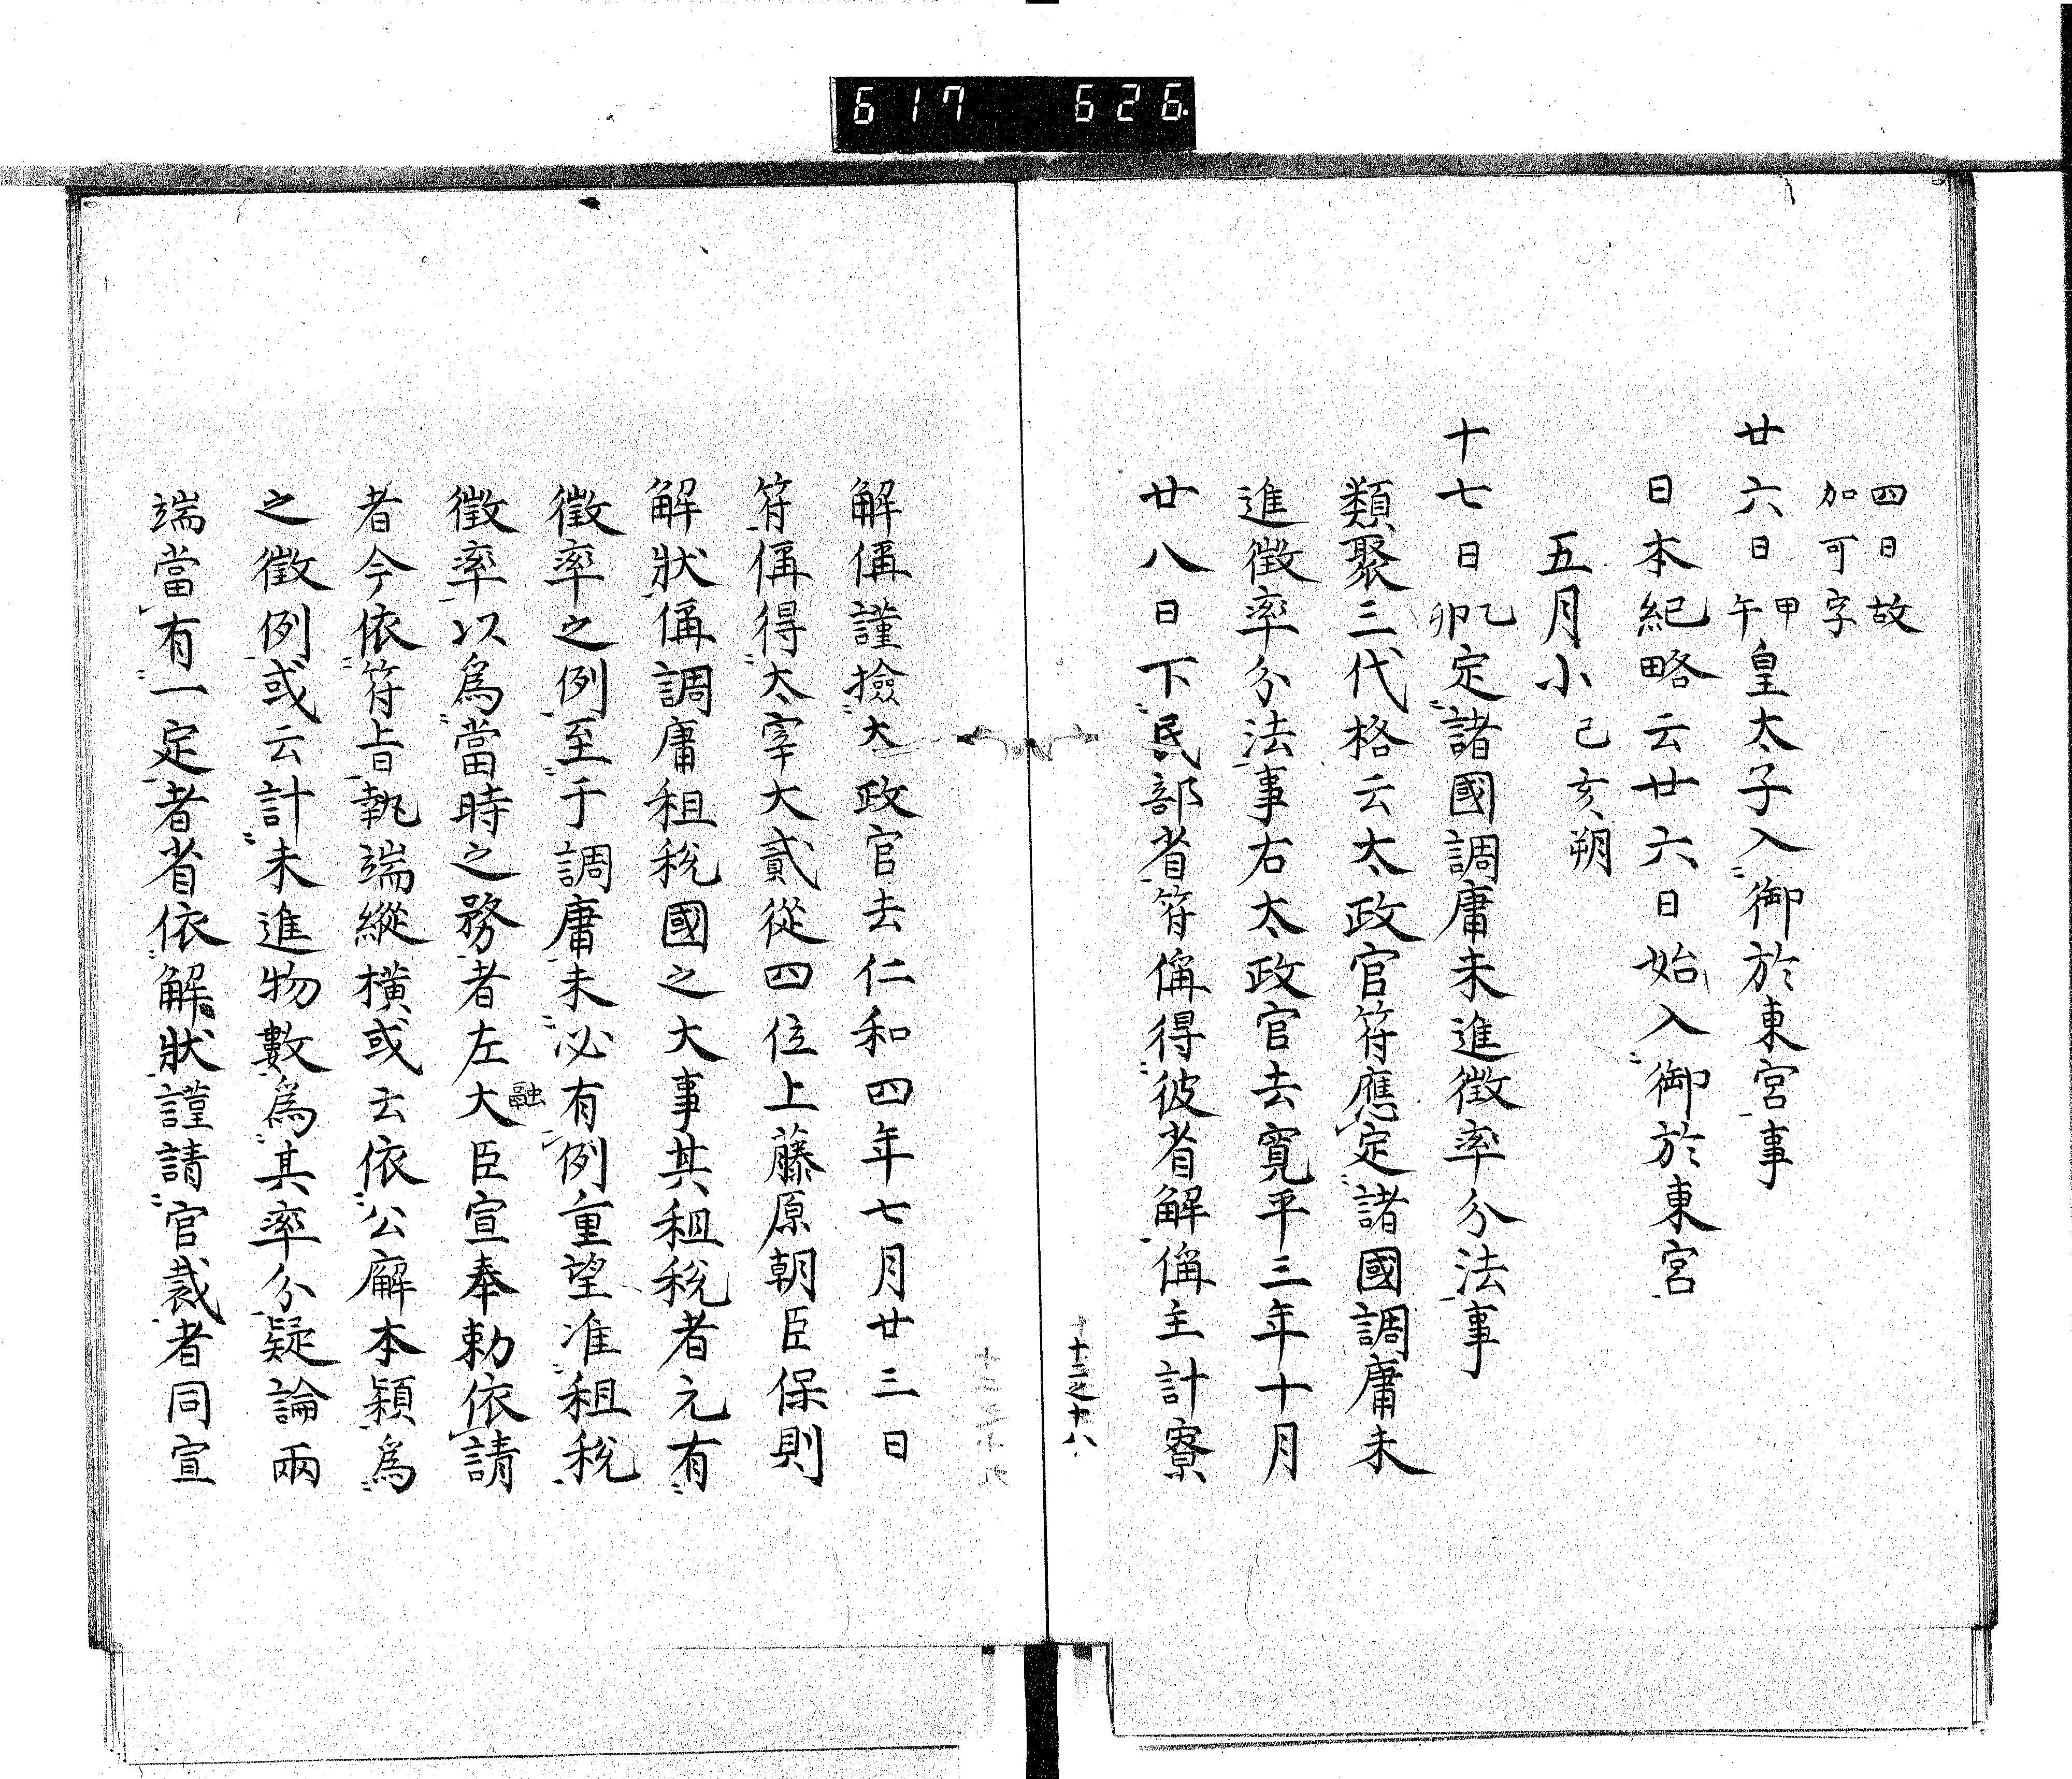 617 626.
四日故
加可字
廿六日甲午皇太子入御於東宮事
日本紀略云廿六日始入御於東宮
五月小己亥朔
十七日乙卯定諸國調庸未進徴率分法事
類聚三代格云太政官符應定諸國調庸未
進徴率分法事右太政官去寛平三年十月
廿八日下民部省符偁得彼省解偁主計寮
十二之十八
解偁謹撿大政官去仁和四年七月廿三日
符偁得太宰大貳從四位上藤原朝臣保則
解狀偁調庸租税國之大事其租税者元有
徴率之例至于調庸未必有例重望准租税
徴率以爲當時之務者左大臣融宣奉勅依請
者今依符旨執端縱横或云依公廨本穎爲
之徴例或云計未進物數爲其率分疑論兩
端當有一定者省依解狀謹請官裁者同宣